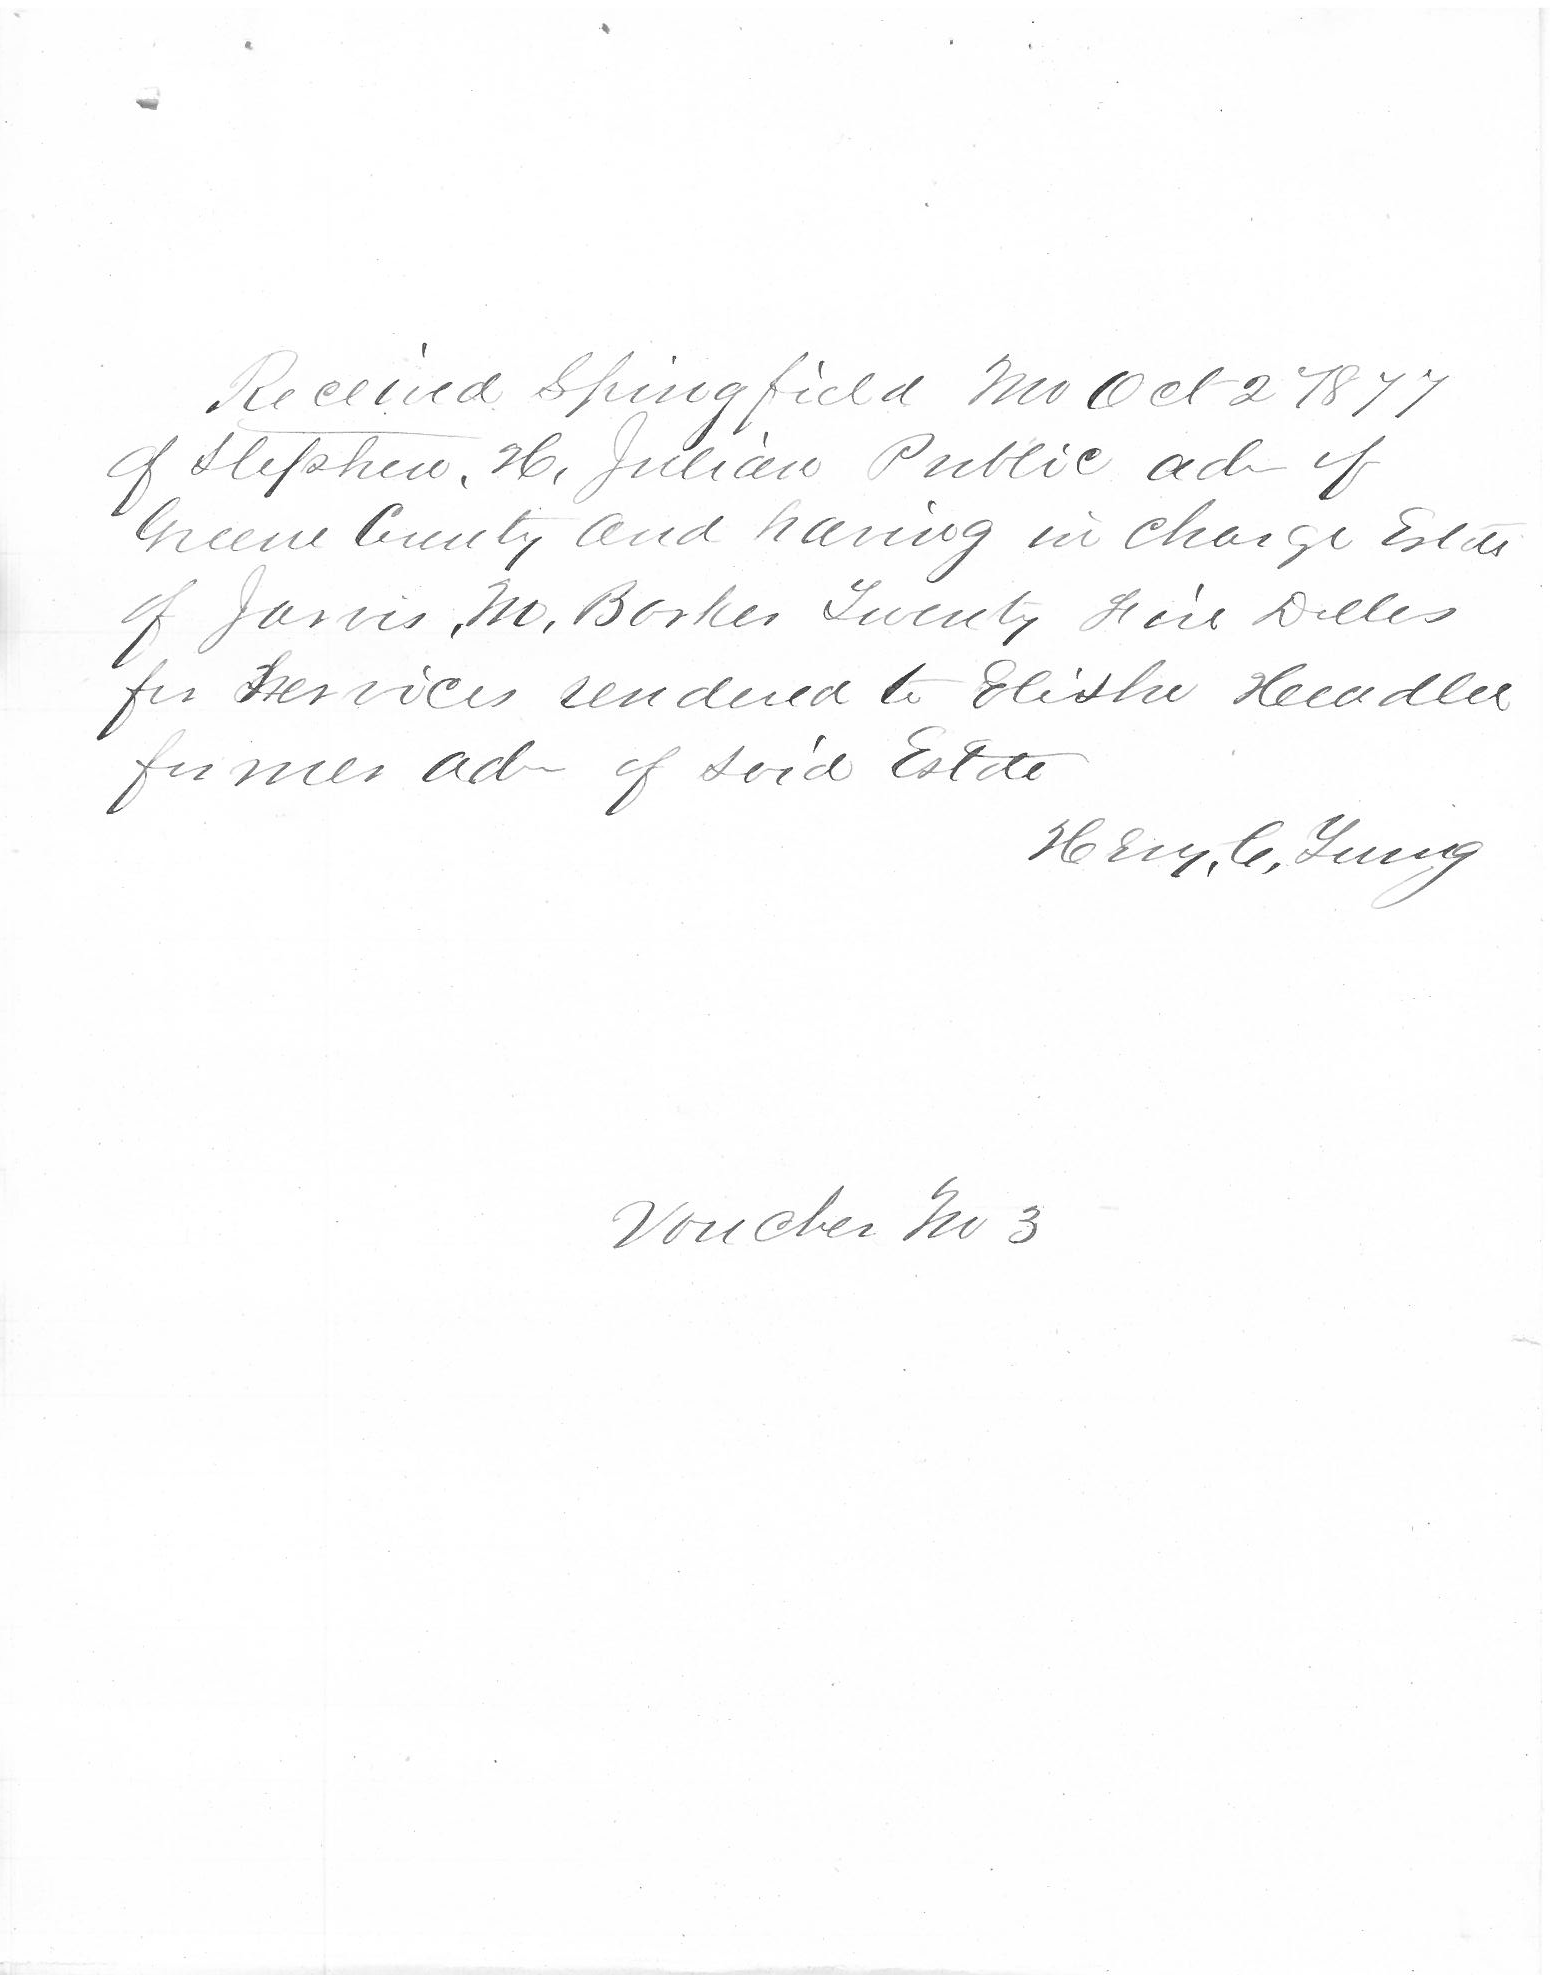 Received Springfield Mo Oct 2 1877
of Stephen. H. Julian Public adm of
Greene County and having in charge Estate
of Jarvis. M. Barker Twenty Five Dollers
for Services rendered to Elisha Headlee
former adm of said Estate
Henry. C. Young
Voucher No 3